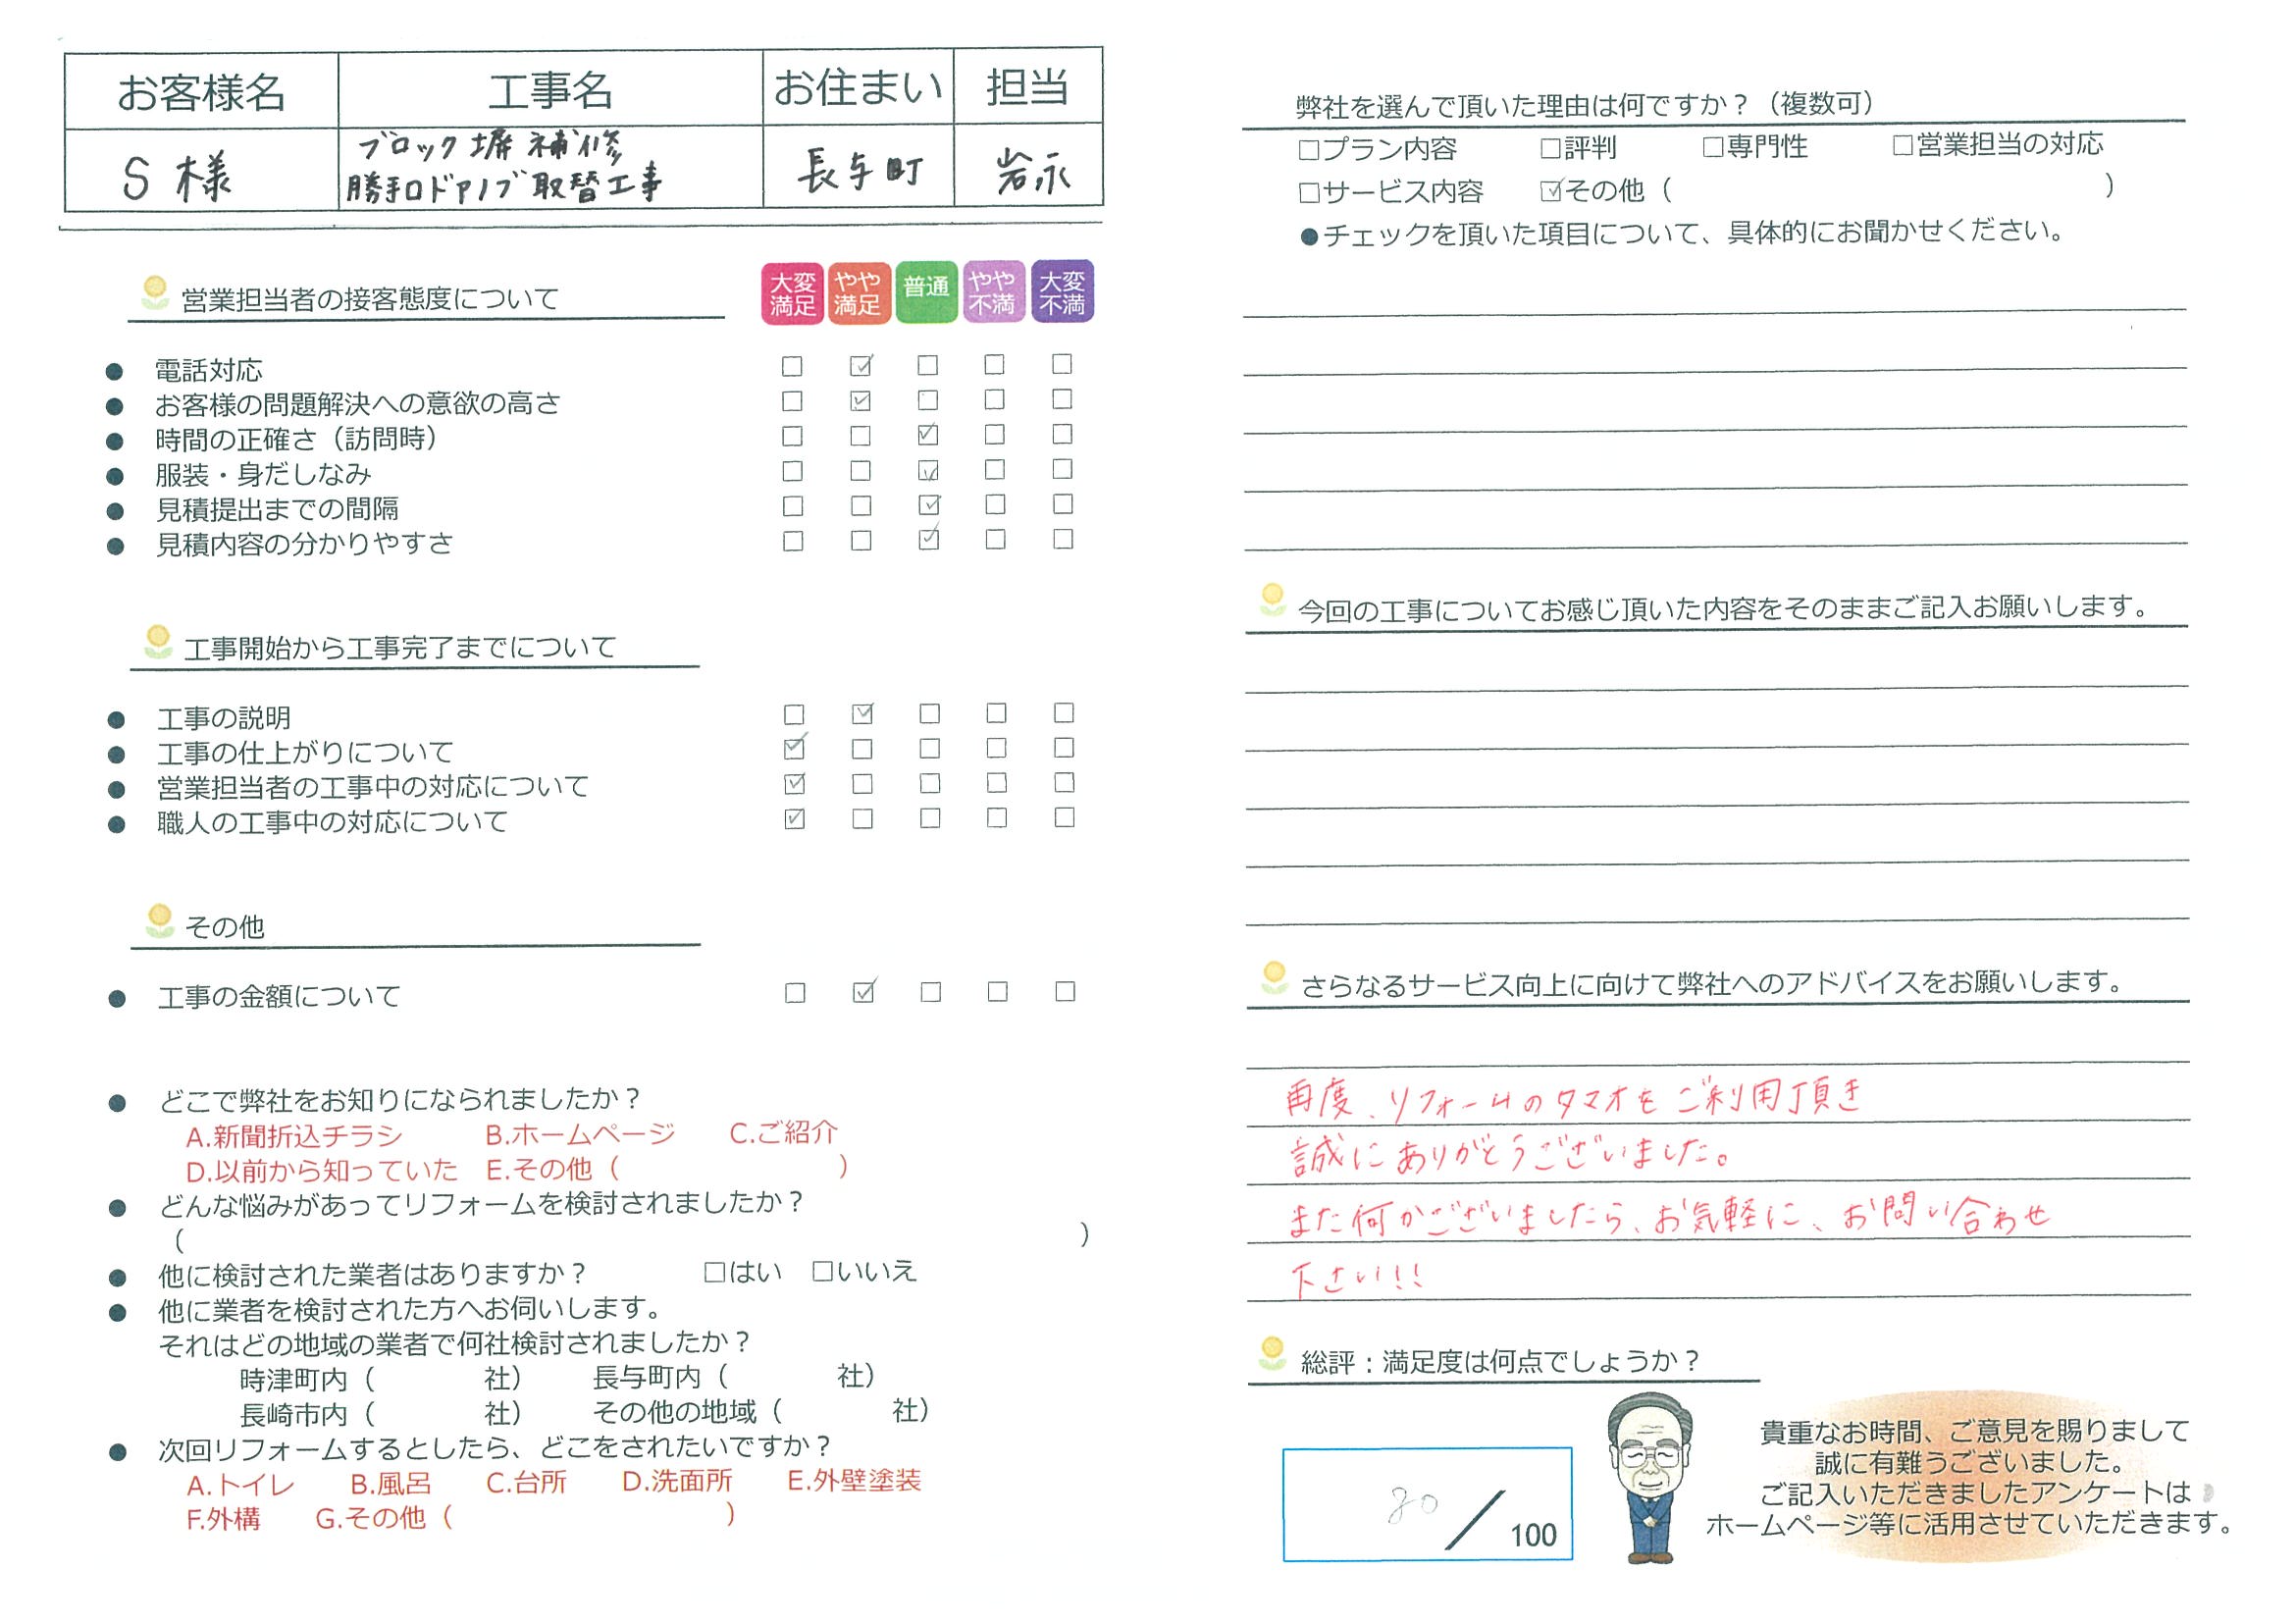 お客様名 工事名 お住まい 担当
S 様 ブロック塀 補修 長与町 岩永
勝手口ドアノブ取替工事
営業担当者の接客態度について
大変満足 やや満足 普通 やや不満 大変不満
● 電話対応 □ ☑ □ □ □
● お客様の問題解決への意欲の高さ □ ☑ □ □ □
● 時間の正確さ（訪問時） □ □ ☑ □ □
● 服装・身だしなみ □ □ ☑ □ □
● 見積提出までの間隔 □ □ ☑ □ □
● 見積内容の分かりやすさ □ □ ☑ □ □
工事開始から工事完了までについて
● 工事の説明 □ ☑ □ □ □
● 工事の仕上がりについて ☑ □ □ □ □
● 営業担当者の工事中の対応について ☑ □ □ □ □
● 職人の工事中の対応について ☑ □ □ □ □
その他
● 工事の金額について □ ☑ □ □ □
● どこで弊社をお知りになられましたか？
A.新聞折込チラシ B.ホームページ C.ご紹介
D.以前から知っていた E.その他（ ）
● どんな悩みがあってリフォームを検討されましたか？
（ ）
● 他に検討された業者はありますか？ □はい □いいえ
● 他に業者を検討された方へお伺いします。
それはどの地域の業者で何社検討されましたか？
時津町内（ 社） 長与町内（ 社）
長崎市内（ 社） その他の地域（ 社）
● 次回リフォームするとしたら、どこをされたいですか？
A.トイレ B.風呂 C.台所 D.洗面所 E.外壁塗装
F.外構 G.その他（ ）
弊社を選んで頂いた理由は何ですか？（複数可）
□プラン内容 □評判 □専門性 □営業担当の対応
□サービス内容 ☑その他（ ）
●チェックを頂いた項目について、具体的にお聞かせください。
今回の工事についてお感じ頂いた内容をそのままご記入お願いします。
さらなるサービス向上に向けて弊社へのアドバイスをお願いします。
再度、リフォームのタマオをご利用頂き
誠にありがとうございました。
また何かございましたら、お気軽に、お問い合わせ
下さい!!
総評：満足度は何点でしょうか？
80／100
貴重なお時間、ご意見を賜りまして
誠に有難うございました。
ご記入いただきましたアンケートは
ホームページ等に活用させていただきます。